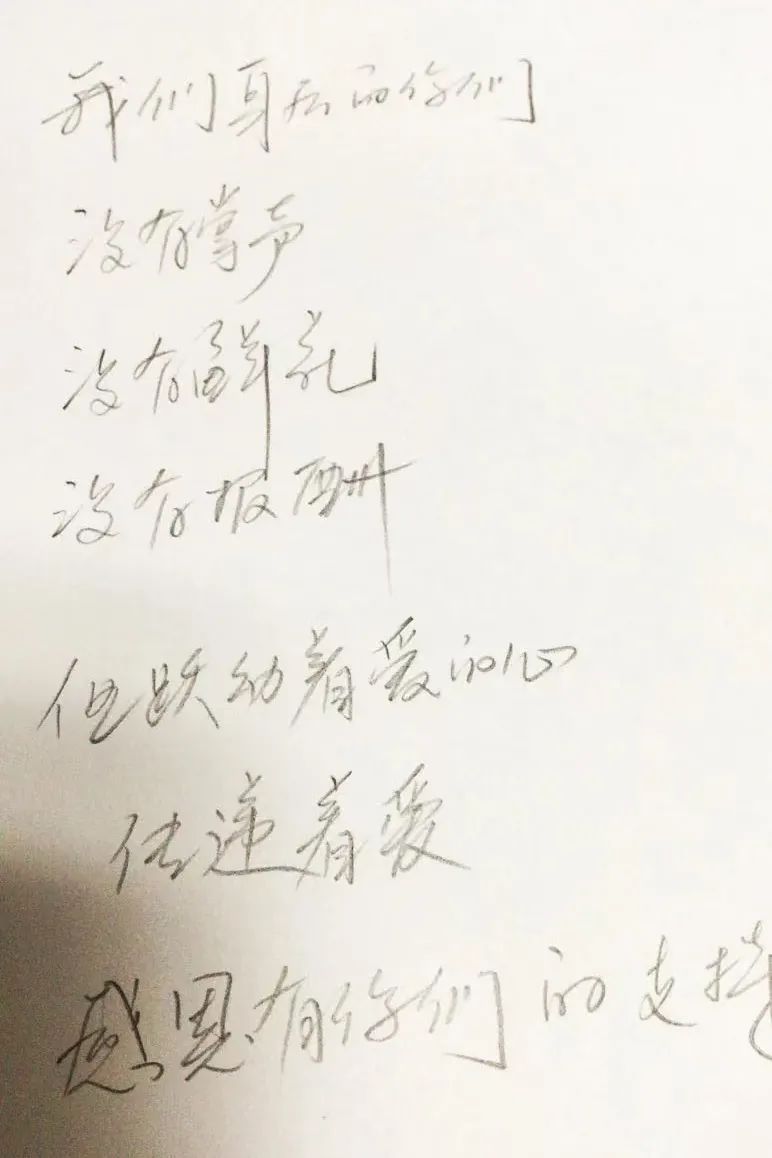 我们身后的你们
没有掌声
没有鲜花
没有报酬
但跃动着爱的心
传递着爱
感恩有你们的支持